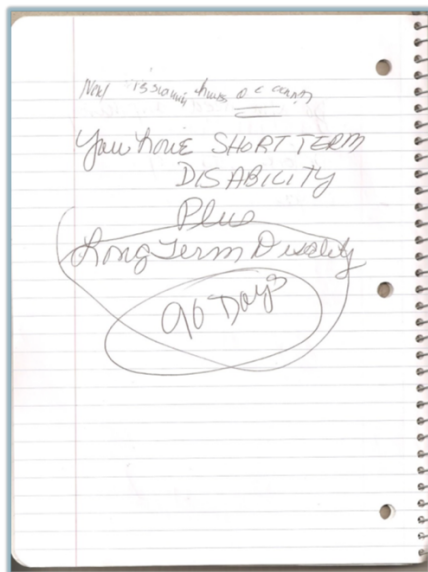 You have SHORT TERM
DISABILITY
Plus
Long Term Disality
90 Days